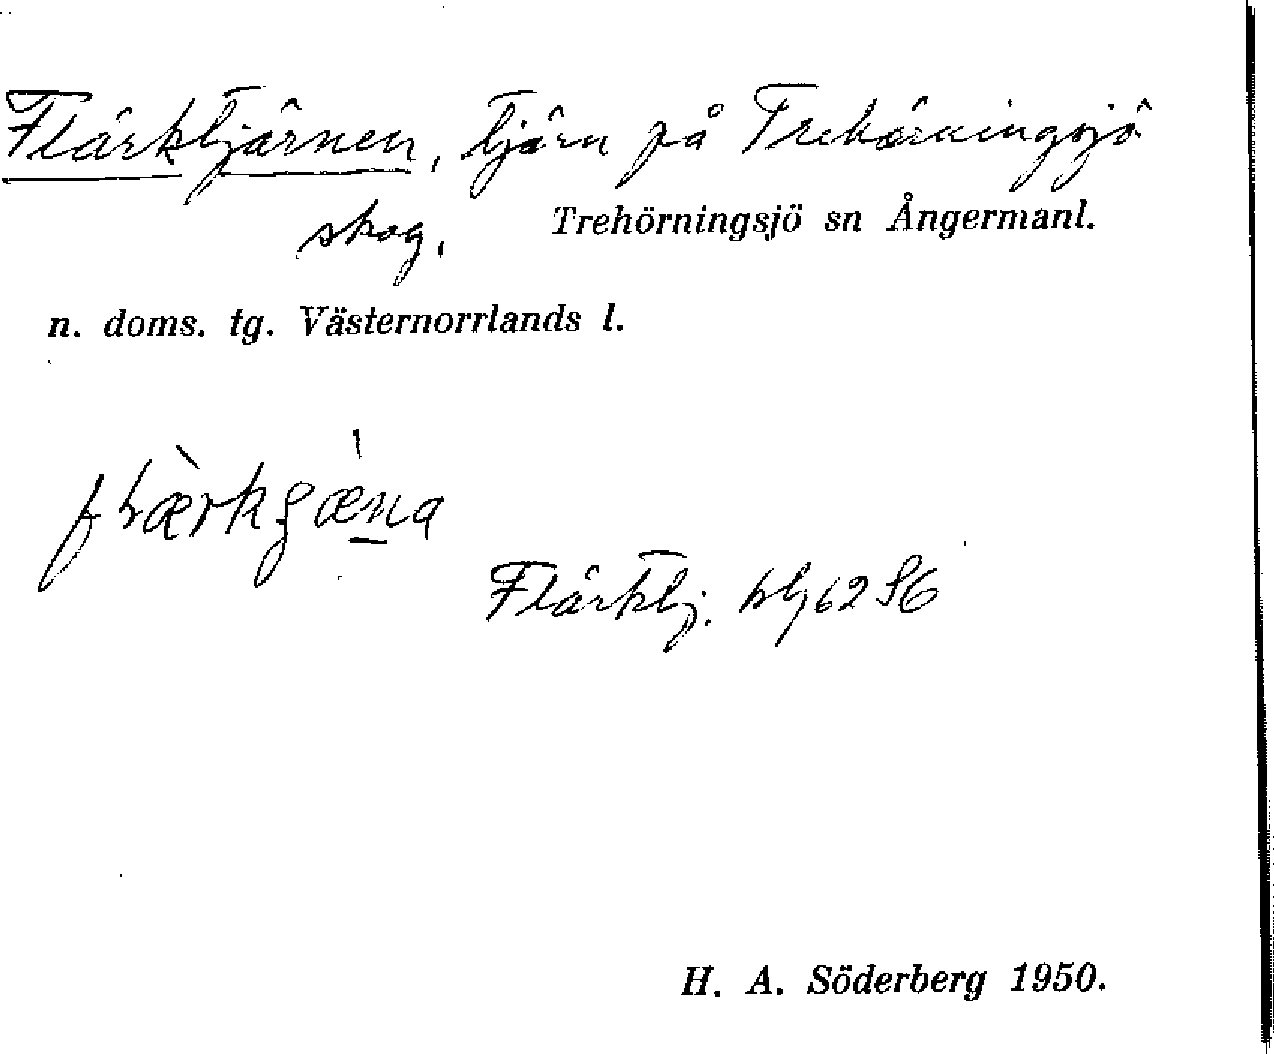 Flärktjärnen, tjärn på Trehörningsjö
skog.
Trehörningsjö sn Ångermanl.
n. doms. tg. Västernorrlands l.
Flärktj. blg 62 S6
H. A. Söderberg 1950.